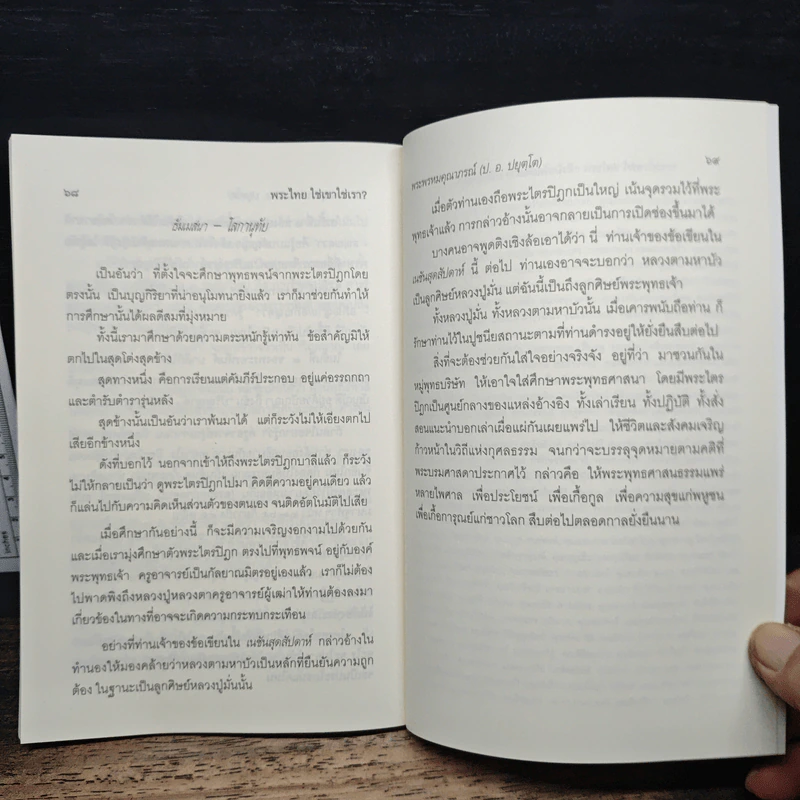 ๖๘
พระไทย ใช่เขาใช่เรา?
ธัมมเสนา – โลกานุทัย
เป็นอันว่า ที่ตั้งใจจะศึกษาพุทธพจน์จากพระไตรปิฎกโดย
ตรงนั้น เป็นบุญกิริยาที่น่าอนุโมทนายิ่งแล้ว เราก็มาช่วยกันทำให้
การศึกษานั้นได้ผลดีสมที่มุ่งหมาย
ทั้งนี้เรามาศึกษาด้วยความตระหนักรู้เท่าทัน ข้อสำคัญมิให้
ตกไปในสุดโต่งสุดข้าง
สุดทางหนึ่ง คือการเรียนแต่คัมภีร์ประกอบ อยู่แค่อรรถกถา
และตำรับตำรารุ่นหลัง
สุดข้างนั้นเป็นอันว่าเราพ้นมาได้ แต่ก็ระวังไม่ให้เอียงตกไป
เสียอีกข้างหนึ่ง
ดังที่บอกไว้ นอกจากเข้าให้ถึงพระไตรปิฎกบาลีแล้ว ก็ระวัง
ไม่ให้กลายเป็นว่า ดูพระไตรปิฎกไปมา คิดตีความอยู่คนเดียว แล้ว
ก็แล่นไปกับความคิดเห็นส่วนตัวของตนเอง จนติดอัตโนมัติไปเสีย
เมื่อศึกษากันอย่างนี้ ก็จะมีความเจริญงอกงามไปด้วยกัน
และเมื่อเรามุ่งศึกษาตัวพระไตรปิฎก ตรงไปที่พุทธพจน์ อยู่กับองค์
พระพุทธเจ้า ครูอาจารย์เป็นกัลยาณมิตรอยู่เองแล้ว เราก็ไม่ต้อง
ไปพาดพิงถึงหลวงปู่หลวงตาครูอาจารย์ผู้เฒ่าให้ท่านต้องลงมา
เกี่ยวข้องในทางที่อาจจะเกิดความกระทบกระเทือน
อย่างที่ท่านเจ้าของข้อเขียนใน เนชันสุดสัปดาห์ กล่าวอ้างใน
ทำนองให้มองคล้ายว่าหลวงตามหาบัวเป็นหลักที่ยืนยันความถูก
ต้อง ในฐานะเป็นลูกศิษย์หลวงปู่มั่นนั้น
พระพรหมคุณาภรณ์ (ป. อ. ปยุตฺโต)
๖๙
เมื่อตัวท่านเองถือพระไตรปิฎกเป็นใหญ่ เน้นจุดรวมไว้ที่พระ
พุทธเจ้าแล้ว การกล่าวอ้างนั้นอาจกลายเป็นการเปิดช่องขึ้นมาได้
บางคนอาจพูดติงเชิงล้อเอาได้ว่า นี่ ท่านเจ้าของข้อเขียนใน
เนชันสุดสัปดาห์ นี้ ต่อไป ท่านเองอาจจะบอกว่า หลวงตามหาบัว
เป็นลูกศิษย์หลวงปู่มั่น แต่ฉันนี้เป็นถึงลูกศิษย์พระพุทธเจ้า
ทั้งหลวงปู่มั่น ทั้งหลวงตามหาบัวนั้น เมื่อเคารพนับถือท่าน ก็
รักษาท่านไว้ในปูชนียสถานะตามที่ท่านดำรงอยู่ให้ยั่งยืนสืบต่อไป
สิ่งที่จะต้องช่วยกันใส่ใจอย่างจริงจัง อยู่ที่ว่า มาชวนกันใน
หมู่พุทธบริษัท ให้เอาใจใส่ศึกษาพระพุทธศาสนา โดยมีพระไตร
ปิฎกเป็นศูนย์กลางของแหล่งอ้างอิง ทั้งเล่าเรียน ทั้งปฏิบัติ ทั้งสั่ง
สอนแนะนำบอกเล่าเผื่อแผ่กันเผยแพร่ไป ให้ชีวิตและสังคมเจริญ
ก้าวหน้าในวิถีแห่งกุศลธรรม จนกว่าจะบรรลุจุดหมายตามคติที่
พระบรมศาสดาประกาศไว้ กล่าวคือ ให้พระพุทธศาสนธรรมแพร่
หลายไพศาล เพื่อประโยชน์ เพื่อเกื้อกูล เพื่อความสุขแก่พหูชน
เพื่อเกื้อการุณย์แก่ชาวโลก สืบต่อไปตลอดกาลยั่งยืนนาน
inches